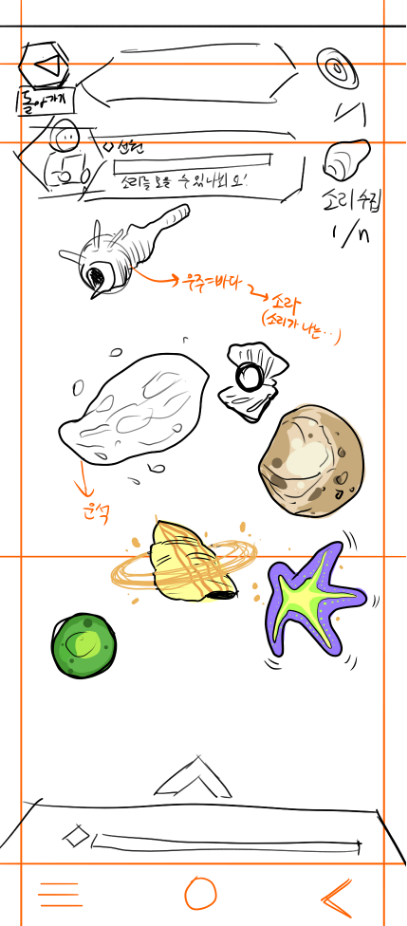 돌아가기
소리를 모을 수 있나봐요!
소리 수집
1/n
우주=바다
소라
(소리가 나는..)
운석